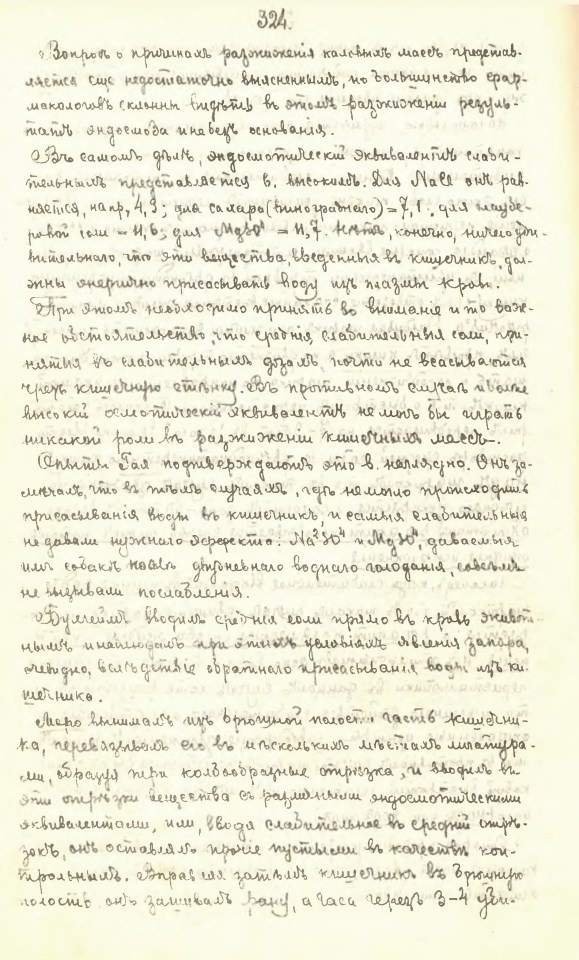 324.
Вопросъ о причинахъ разжиженія каловыхъ массъ представ-
ляется еще недостаточно выясненнымъ, но большинство фар-
макологовъ склонны видѣть въ этомъ разжиженіи резуль-
татъ эндосмоза и небезъ основанія.
Въ самомъ дѣлѣ, эндосмотическій эквивалентъ слаби-
тельныхъ представляется в. высокимъ. Для NaCl онъ рав-
няется, напр, 4,3; для сахара (винограднаго) = 7,1; для глаубе-
ровой соли = 11,6; для MgSO⁴ = 11,7. Нѣтъ, конечно, ничего уди-
вительнаго, что эти вещества, введенныя въ кишечникъ, дол-
жны энергично присасывать воду изъ плазмы крови.
При этомъ необходимо принять во вниманіе и то важ-
ное обстоятельство, что среднія слабительныя соли, при-
нятыя въ слабительныхъ дозахъ, почти не всасываются
чрезъ кишечную стѣнку. Въ противномъ случаѣ и болѣе
высокій осмотическій эквивалентъ не могъ бы играть
никакой роли въ разжиженіи кишечныхъ массъ.
Опыты Гая подтверждаютъ это в. наглядно. Онъ за-
мѣчалъ, что въ тѣхъ случаяхъ, гдѣ не могло происходить
присасыванія воды въ кишечникъ, и самыя слабительныя
не давали нужнаго эффекта: Na²SO⁴ и MgSO⁴, даваемыя
имъ собакамъ послѣ двудневнаго воднаго голоданія, совсѣмъ
не вызывали послабленія.
Бухгеймъ вводилъ среднія соли прямо въ кровь живот-
нымъ и наблюдалъ при этихъ условіяхъ явленія запора,
очевидно, вслѣдствіе обратнаго присасыванія воды изъ ки-
шечника.
Моро вынималъ изъ брюшной полости часть кишечни-
ка, перевязывалъ его въ нѣсколькихъ мѣстахъ лигатура-
ми, образуя три колбообразные отрѣзка, и вводилъ въ
эти отрѣзки вещества съ различными эндосмотическими
эквивалентами, или, вводя слабительное въ средній отрѣ-
зокъ, онъ оставлялъ прочіе пустыми въ качествѣ кон-
трольныхъ. Вправляя затѣмъ кишечникъ въ брюшную
полость онъ зашивалъ рану, а часа черезъ 3-4 уби-